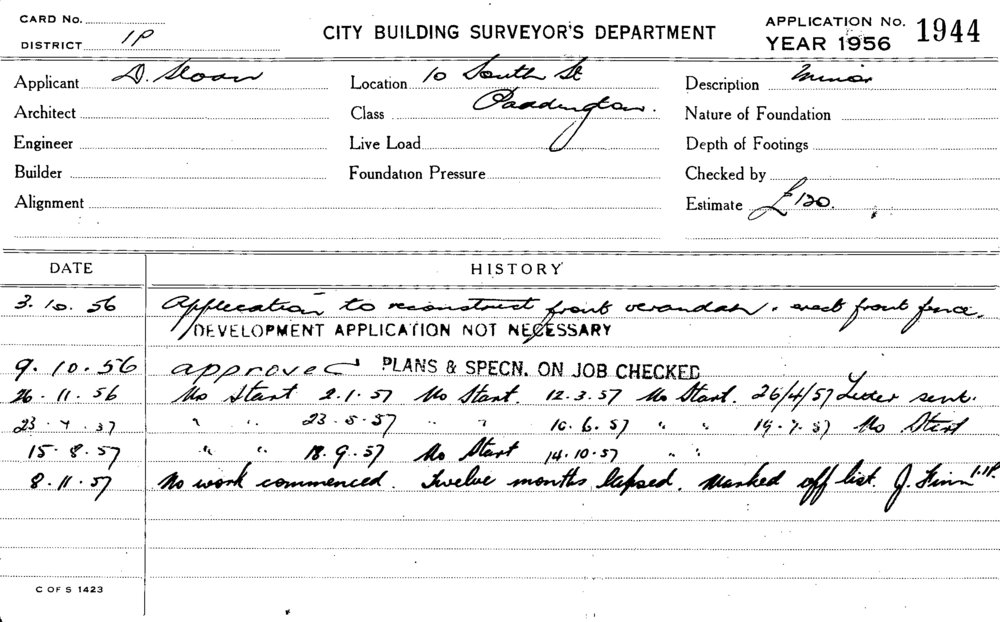 CARD No.
DISTRICT 1P
CITY BUILDING SURVEYOR'S DEPARTMENT
APPLICATION No. 1944
YEAR 1956
Applicant D. Sloan
Location 10 South St
Paddington.
Description Minor
Architect
Class
Nature of Foundation
Engineer
Live Load
Depth of Footings
Builder
Foundation Pressure
Checked by
Alignment
Estimate £120.
DATE HISTORY
3.10.56 Application to reconstruct front verandah & erect front fence.
DEVELOPMENT APPLICATION NOT NECESSARY
9.10.56 approved PLANS & SPECN. ON JOB CHECKED
26.11.56 No Start 2.1.57 No Start. 12.3.57 No Start. 26/4/57 Letter sent.
23.4.57 " " 23.5.57 " " 10.6.57 " " 19.7.57 No Start
15.8.57 " " 18.9.57 No Start 14.10.57 " "
8.11.57 No work commenced. Twelve months lapsed. Marked off list. J. Finn 1.1P.
C OF S 1423